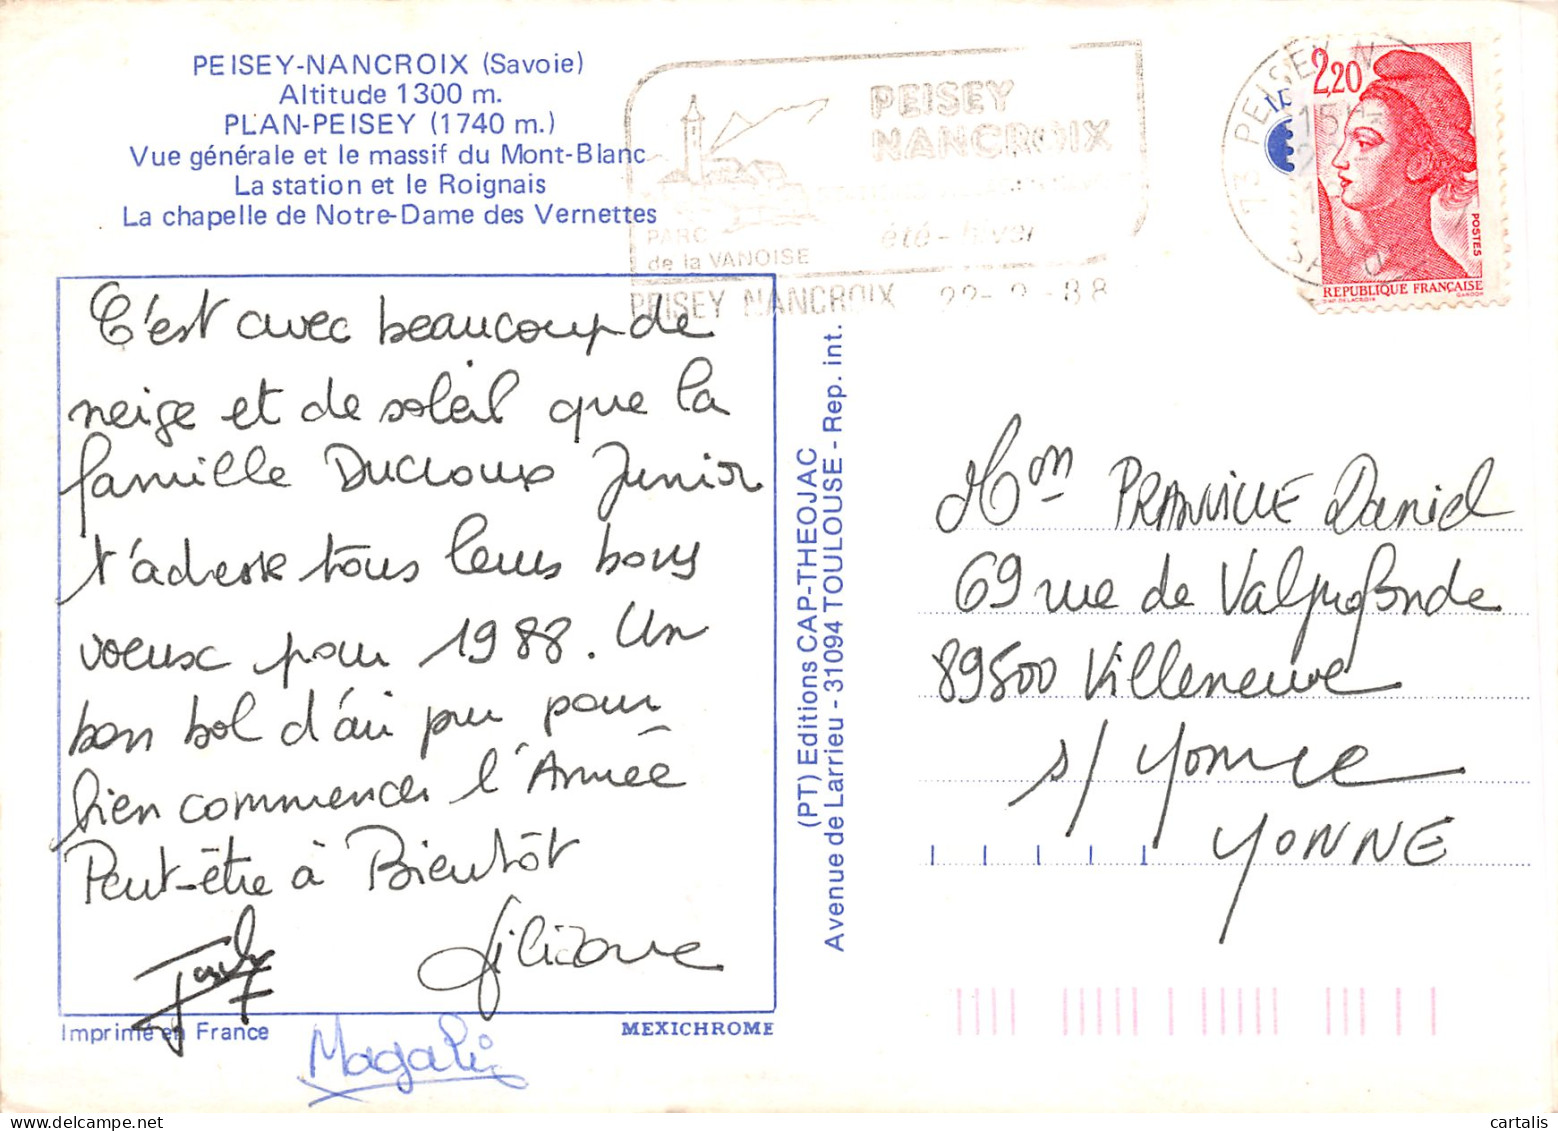 PEISEY-NANCROIX (Savoie)
Altitude 1300 m.
PLAN-PEISEY (1740 m.)
Vue générale et le massif du Mont-Blanc
La station et le Roignais
La chapelle de Notre-Dame des Vernettes
PEISEY
NANCROIX
été - hiver
PARC
de la VANOISE
PEISEY NANCROIX 22- 2 -88
73 PEISEY-N
15H
2,20
POSTES
REPUBLIQUE FRANÇAISE
C'est avec beaucoup de
neige et de soleil que la
famille Ducloux Junior
t'adresse tous leurs bons
voeux pour 1988. Un
bon bol d'air pur pour
bien commencer l'Année
Peut-être à Bientôt
Magali
Imprimé en France
MEXICHROME
(PT) Editions CAP-THEOJAC
Avenue de Larrieu - 31094 TOULOUSE - Rep. int.
PRANVILLE Daniel
69 rue de Valprofonde
89500 Villeneuve
s/ Yonne
YONNE
cartalis